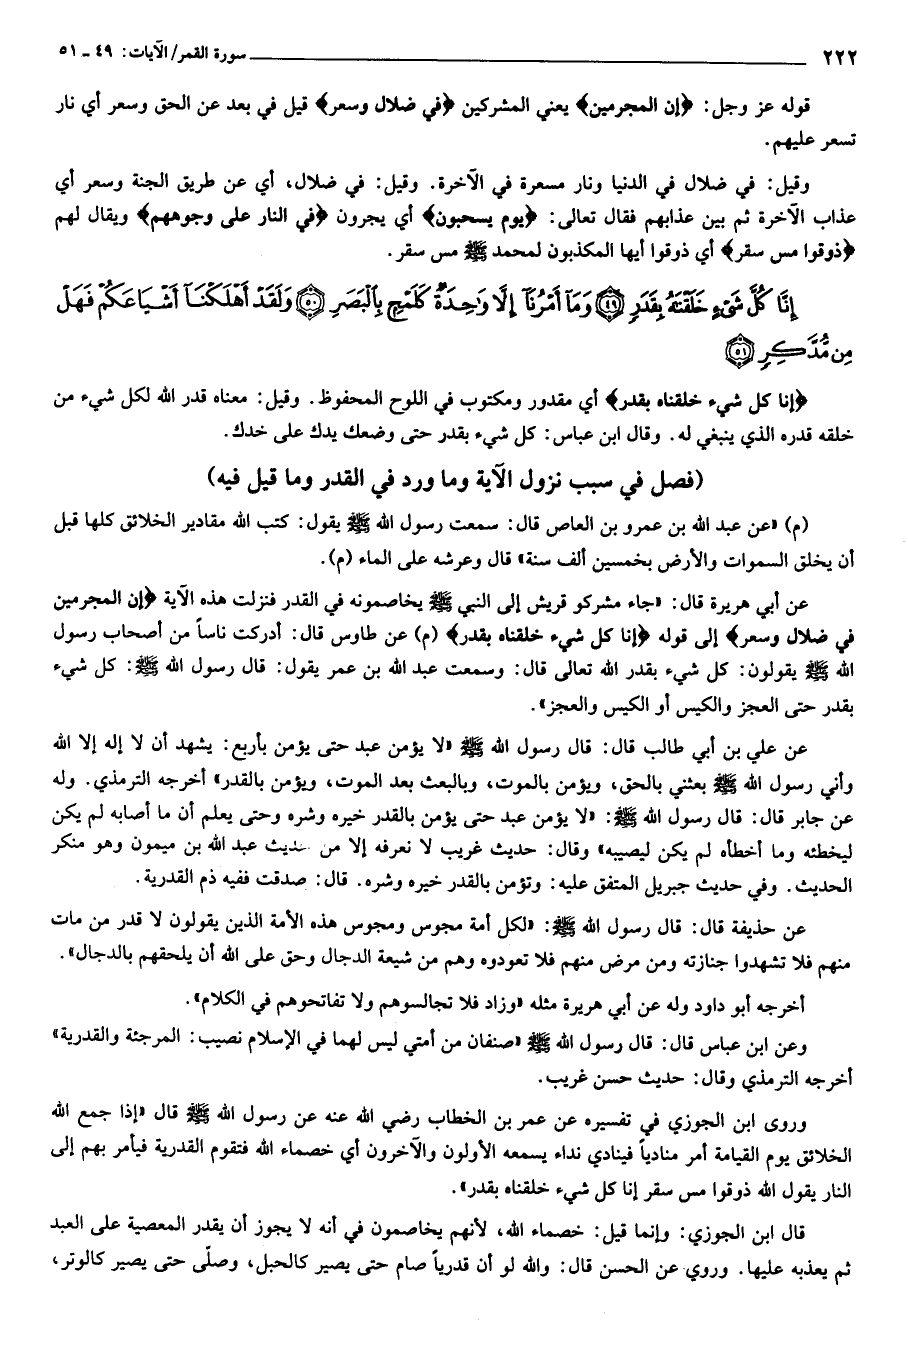 ٢٢٢ سورة القمر/ الآيات: ٤٩ ـ ٥١
قوله عز وجل: ﴿إن المجرمين﴾ يعني المشركين ﴿في ضلال وسعر﴾ قيل في بعد عن الحق وسعر أي نار
تسعر عليهم.
وقيل: في ضلال في الدنيا ونار مسعرة في الآخرة. وقيل: في ضلال، أي عن طريق الجنة وسعر أي
عذاب الآخرة ثم بين عذابهم فقال تعالى: ﴿يوم يسحبون﴾ أي يجرون ﴿في النار على وجوههم﴾ ويقال لهم
﴿ذوقوا مس سقر﴾ أي ذوقوا أيها المكذبون لمحمد ﷺ مس سقر.
إِنَّا كُلَّ شَىْءٍ خَلَقْنَٰهُ بِقَدَرٍ ﴿٤٩﴾ وَمَآ أَمْرُنَآ إِلَّا وَٰحِدَةٌ كَلَمْحٍ بِٱلْبَصَرِ ﴿٥٠﴾ وَلَقَدْ أَهْلَكْنَآ أَشْيَاعَكُمْ فَهَلْ
مِن مُّدَّكِرٍ ﴿٥١﴾
﴿إنا كل شيء خلقناه بقدر﴾ أي مقدور ومكتوب في اللوح المحفوظ. وقيل: معناه قدر الله لكل شيء من
خلقه قدره الذي ينبغي له. وقال ابن عباس: كل شيء بقدر حتى وضعك يدك على خدك.
(فصل في سبب نزول الآية وما ورد في القدر وما قيل فيه)
(م) «عن عبد الله بن عمرو بن العاص قال: سمعت رسول الله ﷺ يقول: كتب الله مقادير الخلائق كلها قبل
أن يخلق السموات والأرض بخمسين ألف سنة» قال وعرشه على الماء (م).
عن أبي هريرة قال: «جاء مشركو قريش إلى النبي ﷺ يخاصمونه في القدر فنزلت هذه الآية ﴿إن المجرمين
في ضلال وسعر﴾ إلى قوله ﴿إنا كل شيء خلقناه بقدر﴾ (م) عن طاوس قال: أدركت ناساً من أصحاب رسول
الله ﷺ يقولون: كل شيء بقدر الله تعالى قال: وسمعت عبد الله بن عمر يقول: قال رسول الله ﷺ: كل شيء
بقدر حتى العجز والكيس أو الكيس والعجز».
عن علي بن أبي طالب قال: قال رسول الله ﷺ «لا يؤمن عبد حتى يؤمن بأربع: يشهد أن لا إله إلا الله
وأني رسول الله ﷺ بعثني بالحق، ويؤمن بالموت، وبالبعث بعد الموت، ويؤمن بالقدر» أخرجه الترمذي. وله
عن جابر قال: قال رسول الله ﷺ: «لا يؤمن عبد حتى يؤمن بالقدر خيره وشره وحتى يعلم أن ما أصابه لم يكن
ليخطئه وما أخطأه لم يكن ليصيبه» وقال: حديث غريب لا نعرفه إلا من حديث عبد الله بن ميمون وهو منكر
الحديث. وفي حديث جبريل المتفق عليه: وتؤمن بالقدر خيره وشره. قال: صدقت ففيه ذم القدرية.
عن حذيفة قال: قال رسول الله ﷺ: «لكل أمة مجوس ومجوس هذه الأمة الذين يقولون لا قدر من مات
منهم فلا تشهدوا جنازته ومن مرض منهم فلا تعودوه وهم من شيعة الدجال وحق على الله أن يلحقهم بالدجال».
أخرجه أبو داود وله عن أبي هريرة مثله «وزاد فلا تجالسوهم ولا تفاتحوهم في الكلام».
وعن ابن عباس قال: قال رسول الله ﷺ «صنفان من أمتي ليس لهما في الإسلام نصيب: المرجئة والقدرية»
أخرجه الترمذي وقال: حديث حسن غريب.
وروى ابن الجوزي في تفسيره عن عمر بن الخطاب رضي الله عنه عن رسول الله ﷺ قال «إذا جمع الله
الخلائق يوم القيامة أمر منادياً فينادي نداء يسمعه الأولون والآخرون أي خصماء الله فتقوم القدرية فيأمر بهم إلى
النار يقول الله ذوقوا مس سقر إنا كل شيء خلقناه بقدر».
قال ابن الجوزي: وإنما قيل: خصماء الله، لأنهم يخاصمون في أنه لا يجوز أن يقدر المعصية على العبد
ثم يعذبه عليها. وروي عن الحسن قال: والله لو أن قدرياً صام حتى يصير كالحبل، وصلّى حتى يصير كالوتر،